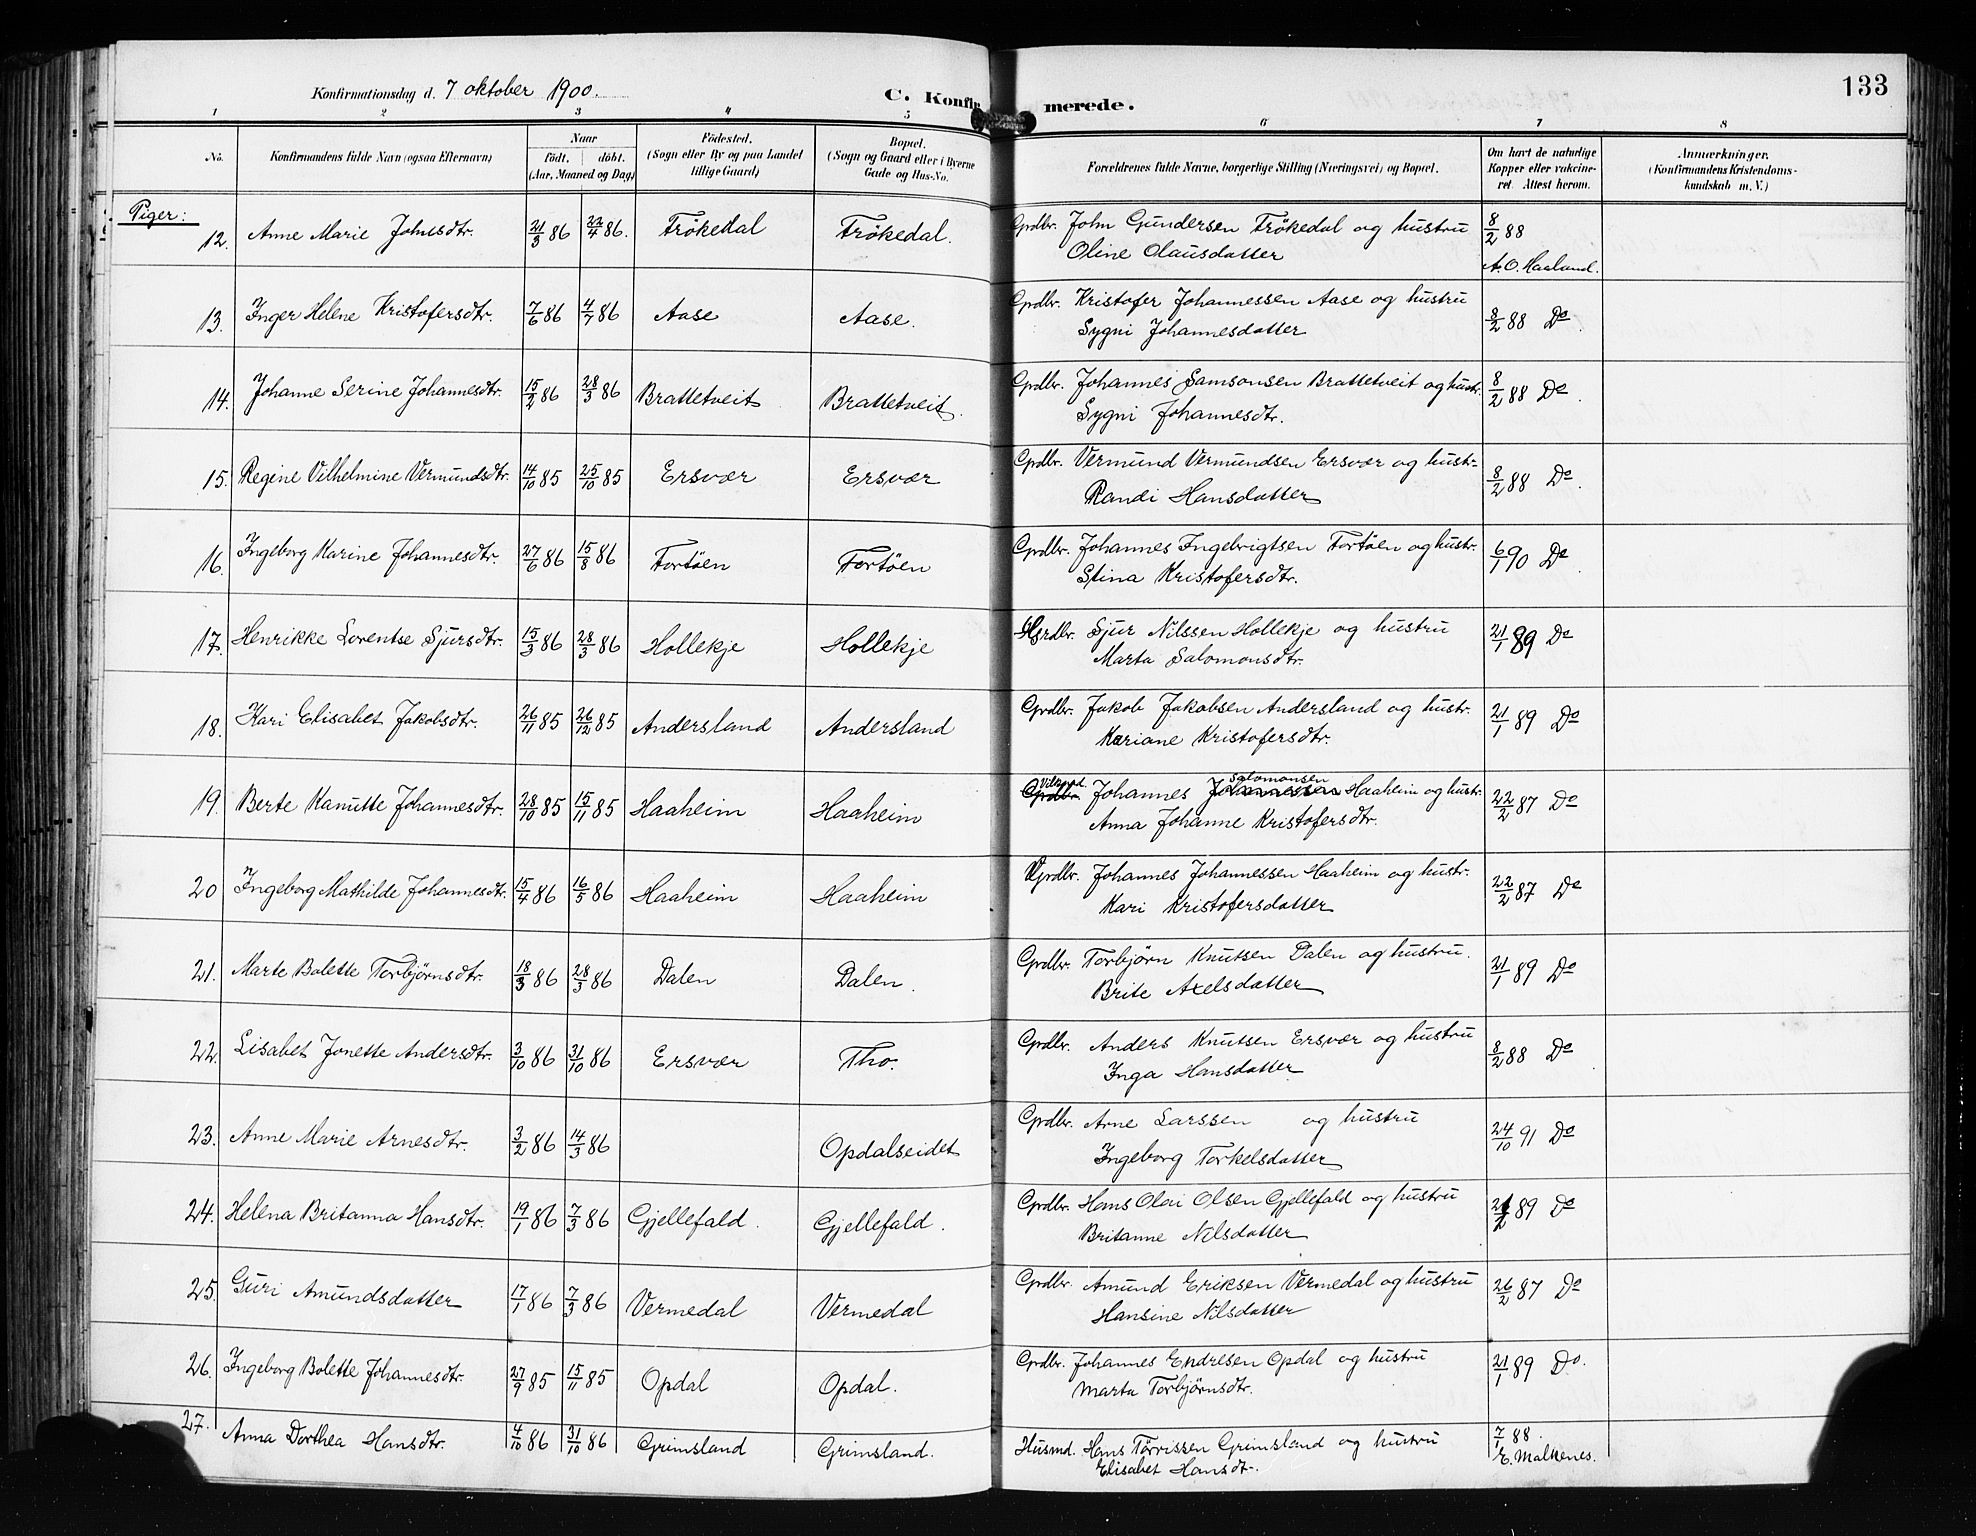 133
Konfirmationsdag d. 7 oktober 1900.
C. Konfirmerede.
1 2 3 4 5 6 7 8
No. Konfirmandens fulde Navn (ogsaa Efternavn) Naar födt. döbt. (Aar, Maaned og Dag) Födested. (Sogn eller By og paa Landet tillige Gaard) Bopæl. (Sogn og Gaard eller i Byerne Gade og Hus-No. Forældrenes fulde Navne, borgerlige Stilling (Næringsvei) og Bopæl. Om havt de naturlige Kopper eller vakcineret. Attest herom. Anmærkninger. (Konfirmandens Kristendomskundskab m. V.)
Piger:
12. Anne Marie Johnsdtr. 21/3 86 22/4 86. Frökedal Frökedal. Grdbr. John Gundersen Frökedal og hustru 8/2 88
Oline Olausdatter A. O. Haaland.
13. Inger Helene Kristofersdtr. 7/6 86 4/7 86 Aase Aase. Grdbr. Kristofer Johannessen Aase og hustru 8/2 88 Do.
Sygni Johannesdatter
14. Johanne Serine Johannesdtr. 15/2 86 28/3 86 Brattetveit Brattetveit. Grdbr. Johannes Samsonsen Brattetveit og hustr. 8/2 88 Do.
Sygni Johannesdtr.
15. Regine Vilhelmine Vermundsdtr. 14/10 85 25/10 85 Ersvær Ersvær Grdbr. Vermund Vermundsen Ersvær og hustr. 8/2 88 Do.
Randi Hansdatter
16. Ingeborg Karine Johannesdtr. 27/6 86 15/8 86 Fortöen Fortöen Grdbr. Johannes Ingebrigtsen Fortöen og hustr. 6/1 90 Do.
Stina Kristofersdtr.
17. Henrikke Lorentse Sjursdtr. 15/3 86 28/3 86 Hollekje Hollekje Grdbr. Sjur Nilssen Hollekje og hustru 21/1 89 Do
Marta Salomonsdtr.
18. Kari Elisabet Jakobsdtr. 26/11 85 26/12 85 Andersland Andersland Grdbr. Jakob Jakobsen Andersland og hustr. 21/1 89 Do
Kariane Kristofersdtr.
19. Berte Kanutte Johannesdtr. 28/10 85 15/11 85 Haaheim Haaheim Grdbr. Johannes Johannessen Salomonsen Haaheim og hustr. 22/2 87 Do
Anna Johanne Kristofersdtr.
20 Ingeborg Mathilde Johannesdtr. 15/4 86 16/5 86 Haaheim Haaheim Grdbr. Johannes Johannessen Haaheim og hustr. 22/2 87 Do
Kari Kristofersdatter
21. Marte Bolette Torbjörnsdtr. 18/3 86 28/3 86 Dalen Dalen. Grdbr. Torbjörn Knutsen Dalen og hustru. 21/1 89 Do
Brite Axelsdatter
22. Lisabet Jonette Andersdtr. 3/10 86 31/10 86 Ersvær Tho. Grdbr. Anders Knutsen Ersvær og hustru 8/2 88 Do
Inga Hansdatter
23. Anne Marie Arnesdtr. 3/2 86 14/3 86 Opdalseidet Grdbr. Arne Larssen og hustru 24/10 91 Do
Ingeborg Torkelsdatter
24. Helena Britanna Hansdtr. 19/1 86 7/3 86 Gjellefald. Gjellefald. Grdbr. Hans Olai Olsen Gjellefald og hustru 89 Do
Britanne Nilsdatter
25. Guri Amundsdatter 17/1 86 7/3 86 Vermedal Vermedal Grdbr. Amund Eriksen Vermedal og hustru 26/2 87 Do
Hansine Nilsdatter
26. Ingeborg Bolette Johannesdtr. 27/9 85 15/11 85 Opdal Opdal. Grdbr. Johannes Endresen Opdal og hustru 21/1 89 Do.
Marta Torbjörnsdtr.
27. Anna Dorthea Hansdtr. 4/10 86 31/10 86 Grimsland Grimsland. Husmd. Hans Törrissen Grimsland og hustru 7/1 88.
Elisabet Hansdt. E. Malkenes.